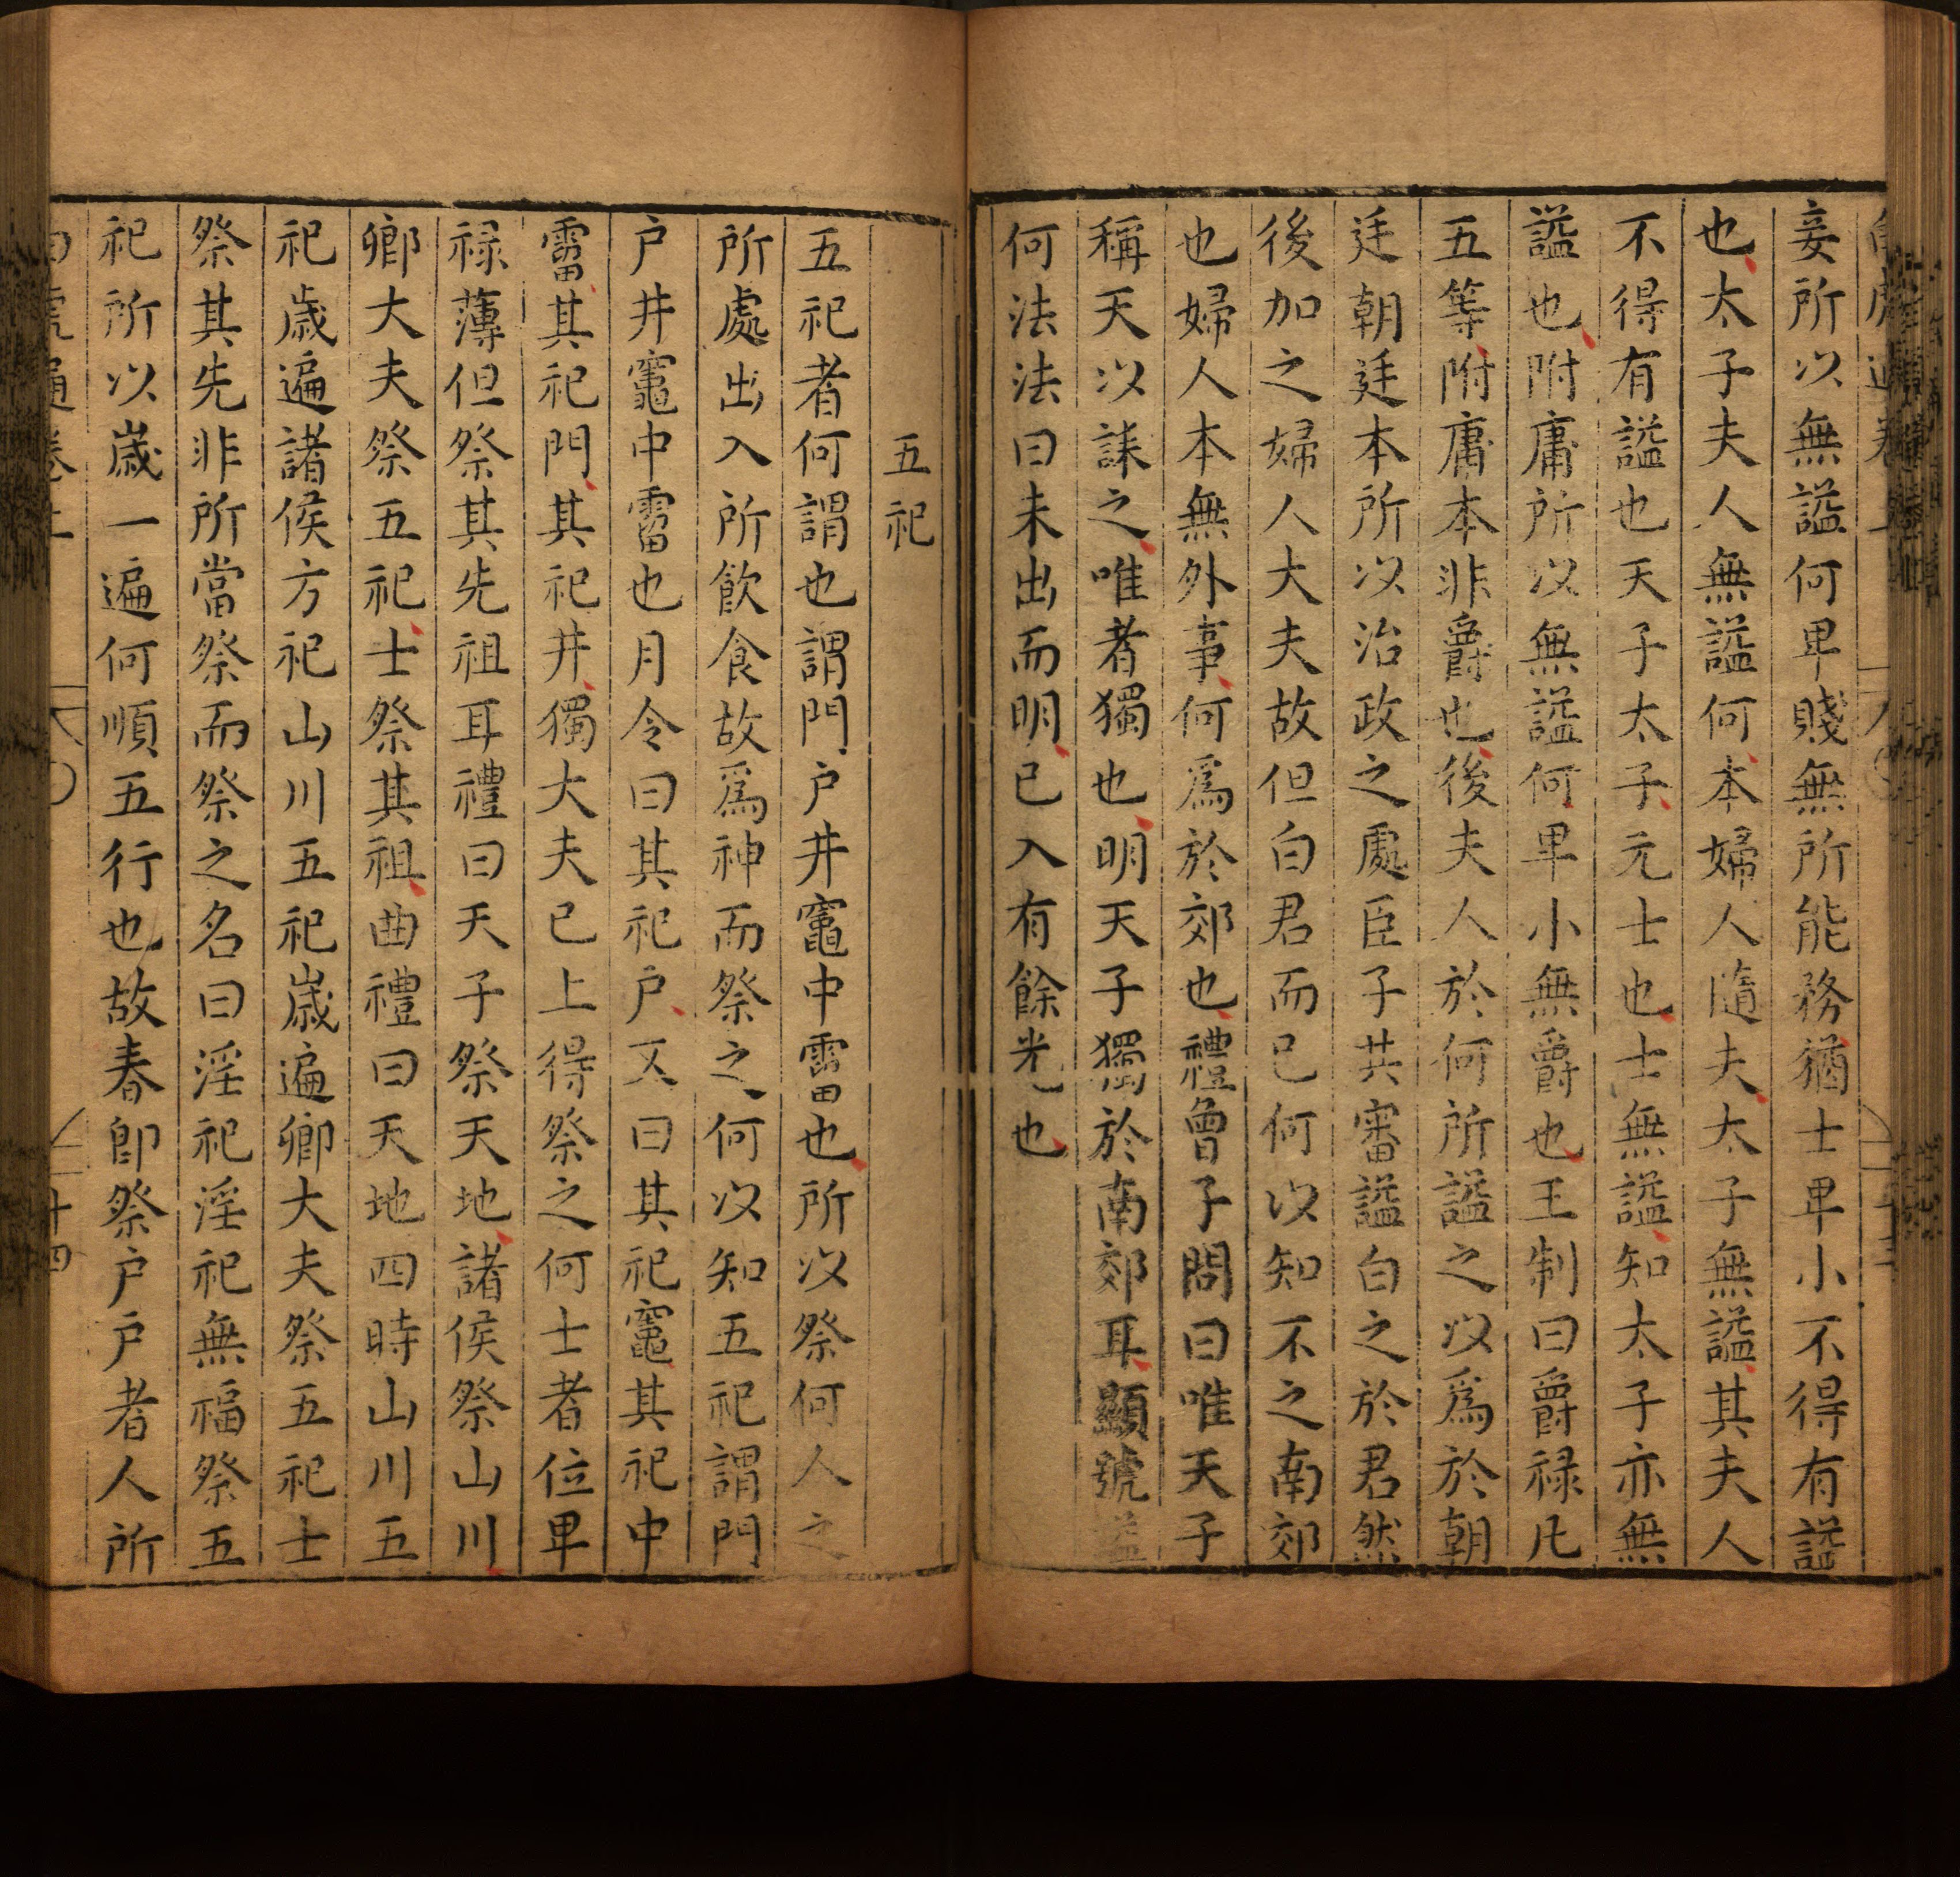 妾所以無謚何卑賤無所能務猶士卑小不得有謚
也太子夫人無謚何本婦人隨夫太子無謚其夫人
不得有謚也天子太子元士也士無謚知太子亦無
謚也附庸所以無謚何卑小無爵也王制曰爵祿凡
五等附庸本非爵也後夫人於何所謚之以爲於朝
廷朝廷本所以治政之處臣子共審謚白之於君然
後加之婦人大夫故但白君而已何以知不之南郊
也婦人本無外事何爲於郊也禮曾子問曰唯天子
稱天以誄之唯者獨也明天子獨於南郊耳顯號謚
何法法曰未出而明已入有餘光也
五祀
五祀者何謂也謂門户井竈中霤也所以祭何人之
所處出入所飲食故爲神而祭之何以知五祀謂門
户井竈中霤也月令曰其祀户又曰其祀竈其祀中
霤其祀門其祀井獨大夫已上得祭之何士者位卑
禄薄但祭其先祖耳禮曰天子祭天地諸侯祭山川
卿大夫祭五祀士祭其祖曲禮曰天地四時山川五
祀歲遍諸侯方祀山川五祀歲遍卿大夫祭五祀士
祭其先非所當祭而祭之名曰淫祀淫祀無福祭五
祀所以歲一遍何順五行也故春即祭户户者人所
白虎通卷上 十四